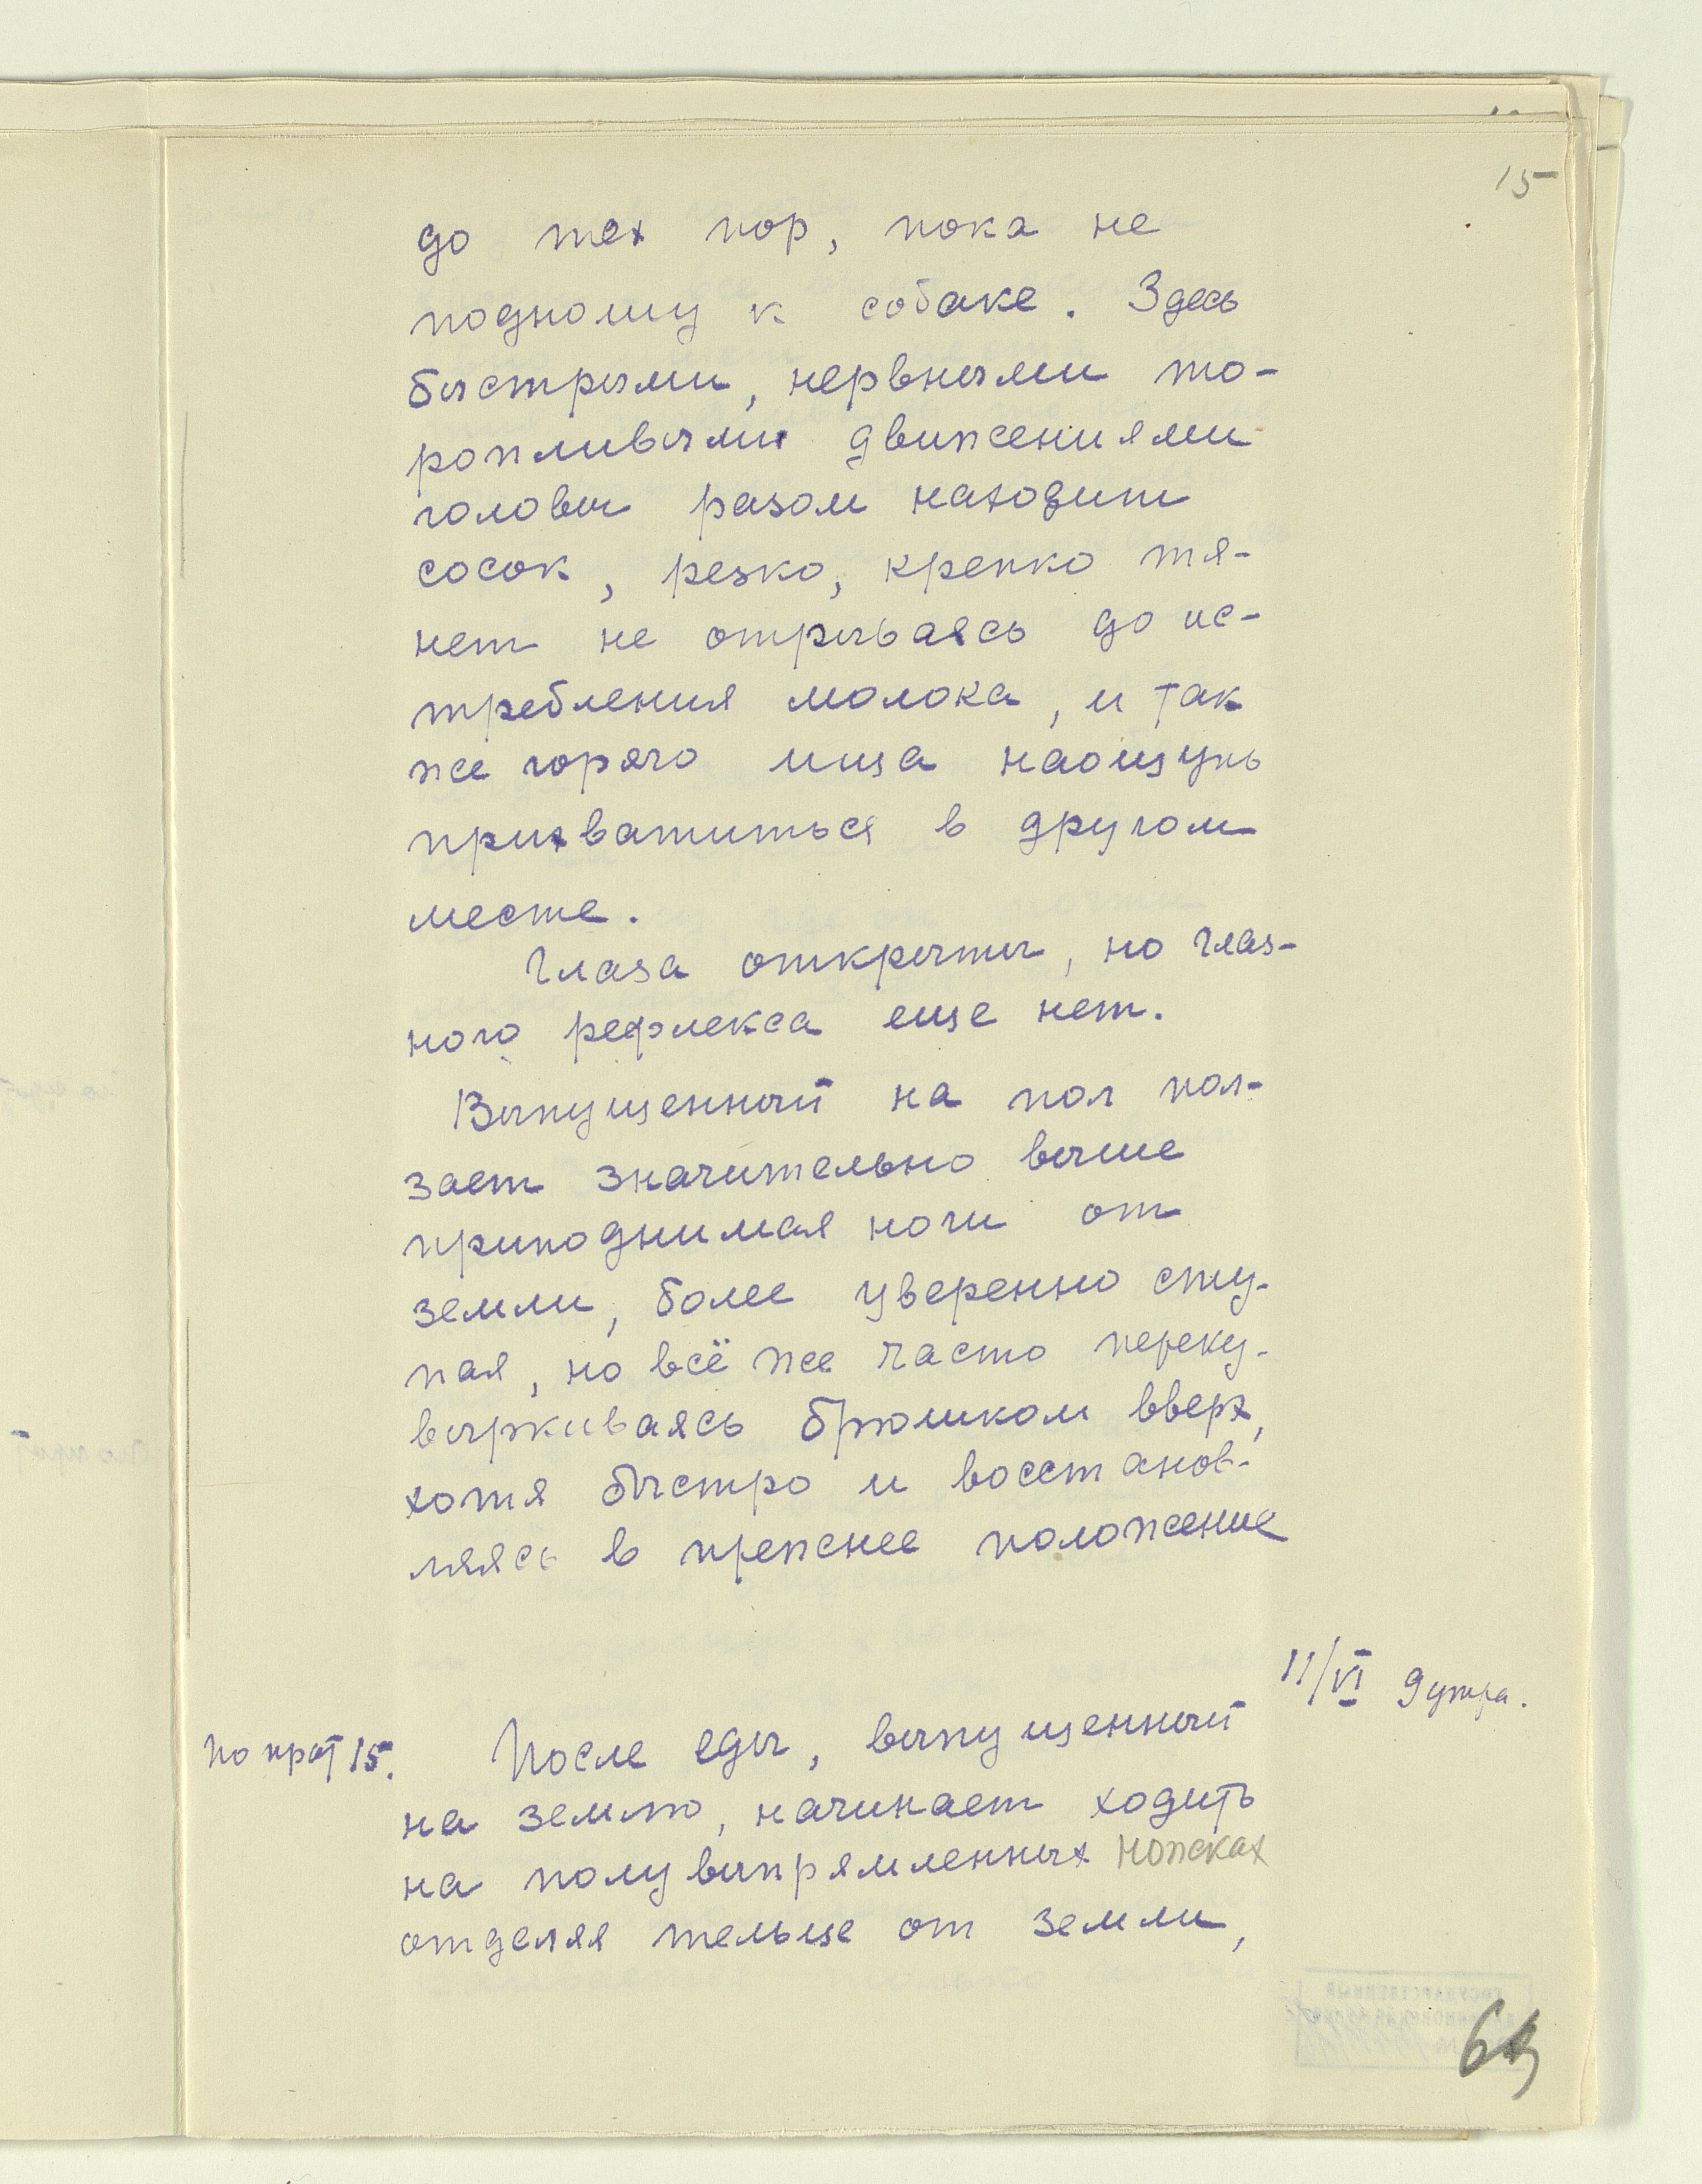 15
до тех пор, пока не
подношу к собаке. Здесь
быстрыми, нервными то-
ропливыми движениями
головы разом находит
сосок, резко, крепко тя-
нет не отрываясь до ис-
требления молока, и так
же горячо ища наощупь
прихватиться в другом
месте.
Глаза открыты, но глаз-
ного рефлекса еще нет.
Выпущенный на пол пол-
зает значительно выше
приподнимая ноги от
земли, более уверенно сту-
пая, но всё же часто переку-
выркиваясь брюшком вверх,
хотя быстро и восстанов-
ляясь в прежнее положение
11/VI 9 утра.
По прот 15. После еды, выпущенный
на землю, начинает ходить
на полувыпрямленных ножках
отделяя тельце от земли,